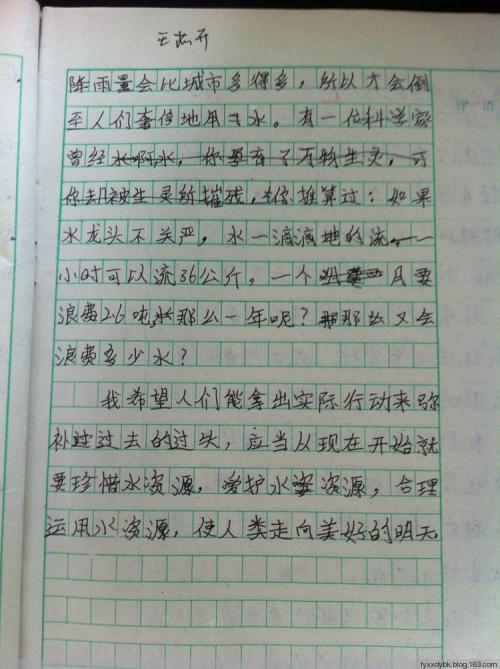 王芯开
降雨量会比城市多得多，所以才会倒
至人们奢侈地用水。有一位科学家
曾经水啊水，你孕育了万物生灵，可
你却被生灵所摧残，推算过：如果
水龙头不关严，水一滴滴地的流，一
小时可以流36公斤，一个月要
浪费26吨，那么一年呢？那么又会
浪费多少水？
我希望人们能拿出实际行动来弥
补过去的过失，应当从现在开始就
要珍惜水资源，爱护水资源，合理
运用水资源，使人类走向美好的明天。
fyxxdybk.blog.163.com